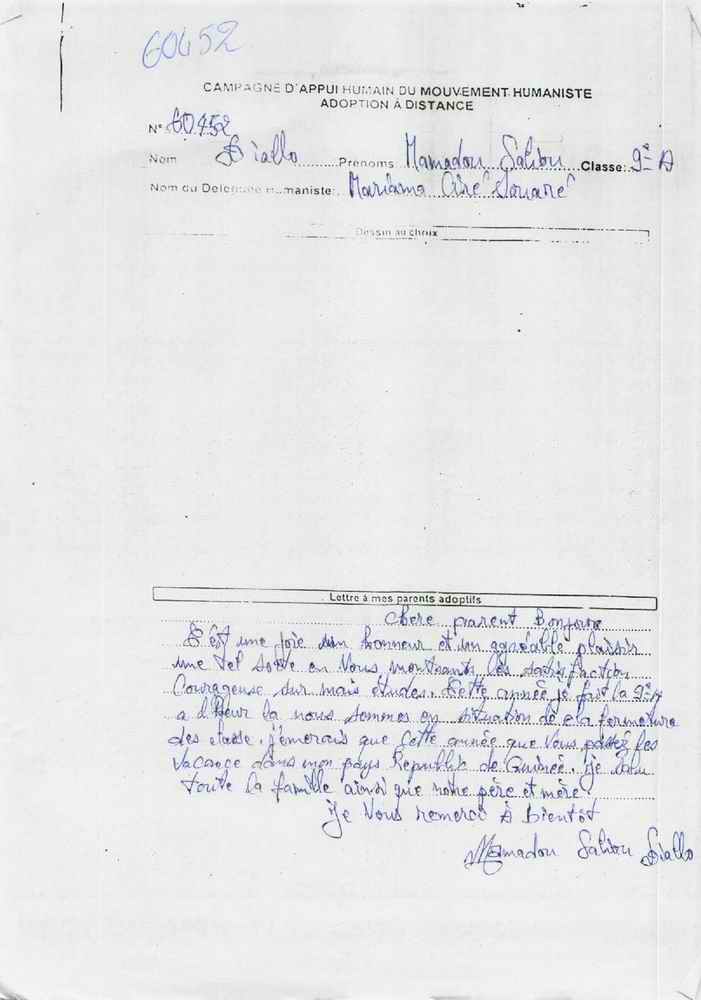 60452
CAMPAGNE D'APPUI HUMAIN DU MOUVEMENT HUMANISTE
ADOPTION À DISTANCE
N° 60452
Nom Diallo Prénoms Mamadou Saliou Classe: 9e A
Nom du Délégué Humaniste: Mariama Ciré Souaré
Dessin au choix
Lettre à mes parents adoptifs
Chere parent Bonjour
C'est une joie un honneur et un agréable plaisir
une tel sorte en Vous montrants les satisfaction
Courageuse sur mais études. Cette année je fait la 9e A
a l'heur la nous sommes en situation de la fermeture
des classe. j'émerais que Cette année que Vous passez les
Vacance dans mon pays Republik de Guinée. je salu
toute la famille ainsi que notre père et mère
Je Vous remerci À bientôt
Mamadou Saliou Diallo